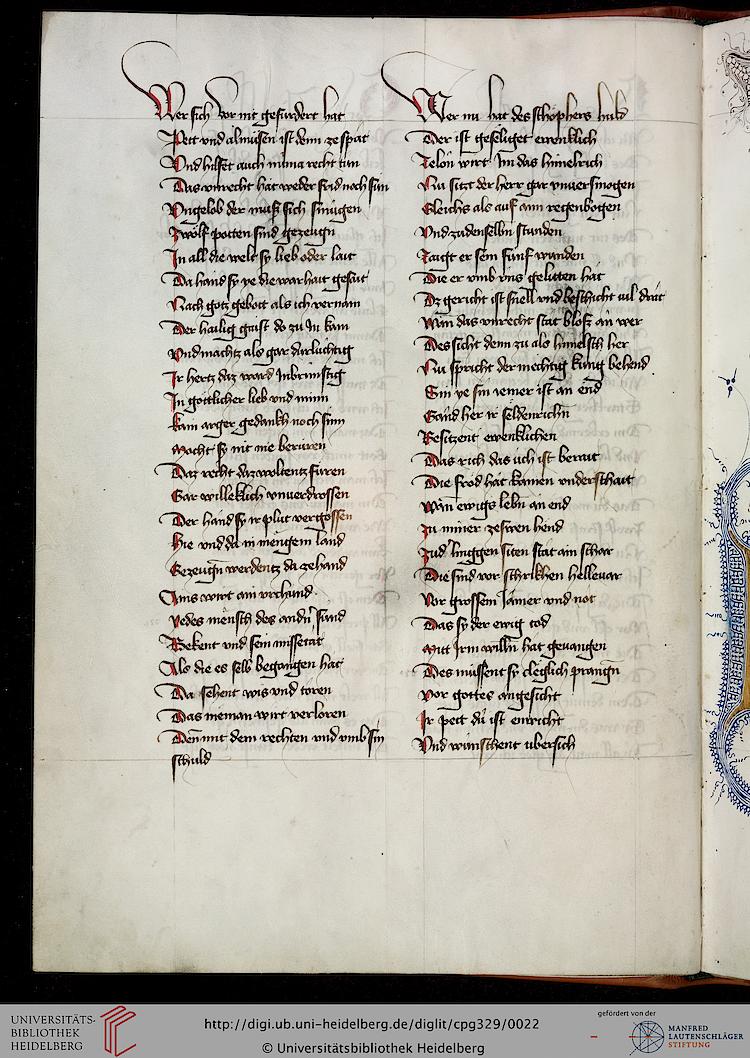 Wer sich vor nit gefürdert hat
Pett vnd almůsen ist denn ze spat
Vnd hilfft auch nima recht tun
Das vnrecht hat weder frid noch sün
Vngelob der můß sich smugen
Zwölf potten sind gezeugn
In all die welt sy lieb oder lait
Da hand sy ye die warhait gesait
Nach gotz gebott als ich vernam
Der hailig gaist do zu In kam
Vnd machtz also gar durluchtig
Ir hertz daz ward Inbrünstig
In göttlicher lieb vnd minn
Kain arger gedankh noch sinn
Mocht sy nit nie berüren
Daz recht daz woltentz füren
Gar willeklich vnuerdrossen
Der hand sy ir plut vergossen
Hie vnd da in mengem land
Gezeugn werdentz da zehand
Ains wirt ain vrchund
Yedes mensch des andn sünd
Bekent vnd sein missetat
Als die es selb begangen hat
Da sehent wis vnd toren
Das nieman wirt verloren
Denn mit dem rechten vnd vmb sin
schuld
Wer nu hat des schöphers huld
Der ist geseliget ewenklich
Zelon wirt Im das himelrich
Nu sitzt der herr gar vnuersmogen
Gleichs als auf aim regenbogen
Vnd zu denselbn stunden
Zaigt er sein fünf wunden
Die er vmb vns gelitten hat
Dz gericht ist snell vnd beschicht uil drat
Wan das vnrecht stat bloß an wer
Des sicht denn zu als himelsch her
Nu spricht der mechtig küng behend
Sin ye sin iemer ist an end
Gand her ir seldenrichn
Besitzent ewenklichen
Das rich das uch ist berait
Die fröd hat kainen vnderschait
Wan ewigs lebn an end
Zu miner zeswen hend
Zud linggen siten stat ain schar
Die sind vor schrikhen hellevar
Vor grossem Jamer vnd not
Das sy der ewig tod
Mitt Irm willn hat geuangen
Des müssent sy cleglich prangn
Vor gottes angesicht
Ir pett dü ist enwicht
Vnd wünschent ubersich
UNIVERSITÄTS-
BIBLIOTHEK
HEIDELBERG
http://digi.ub.uni-heidelberg.de/diglit/cpg329/0022
© Universitätsbibliothek Heidelberg
gefördert von der
MANFRED
LAUTENSCHLÄGER
STIFTUNG